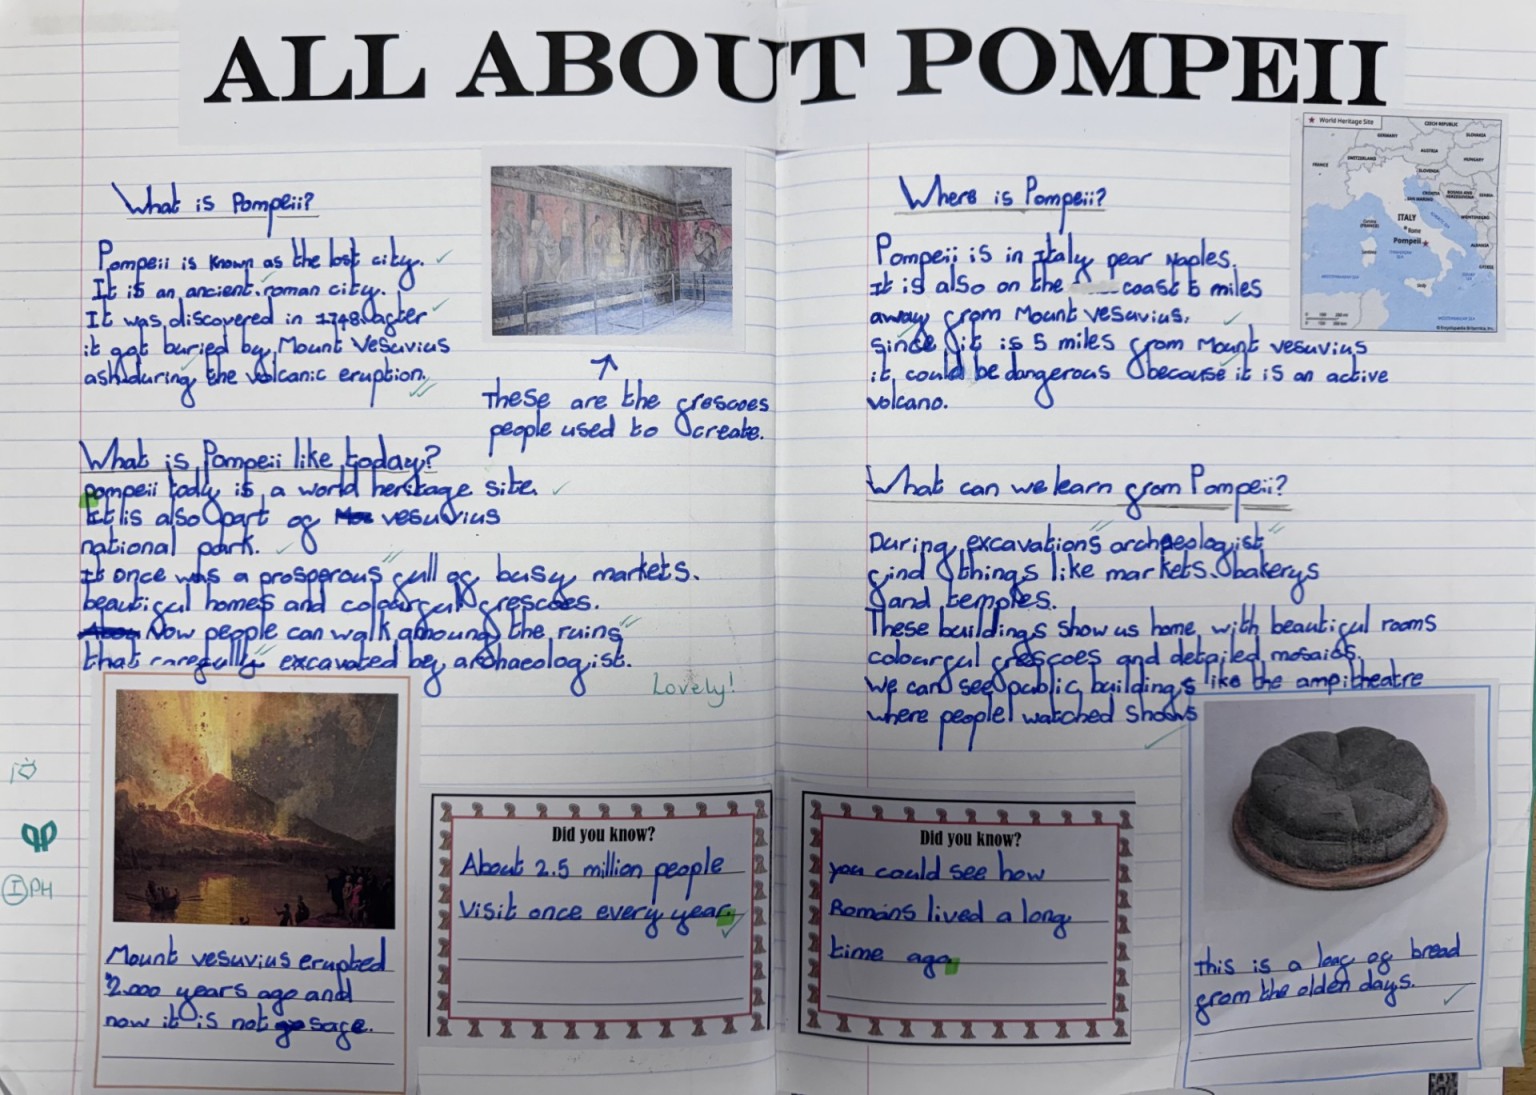 ALL ABOUT POMPEII
What is Pompeii?
Pompeii is known as the lost city.
It is an ancient roman city.
It was discovered in 1748 after
it got buried by Mount Vesuvius
ash during the volcanic eruption.
These are the frescoes
people used to create.
What is Pompeii like today?
pompeii tody is a world heritage site.
It is also part of vesuvius
national park.
It once was a prosperous full of busy markets.
beautiful homes and colourful frescoes.
Now people can walk amoung the ruins
that carefully excavated by archaeologist.
Lovely!
Mount vesuvius erupted
2.000 years ago and
now it is not safe.
Did you know?
About 2.5 million people
visit once every year.
I PH
Where is Pompeii?
Pompeii is in Italy near Naples.
It is also on the coast 5 miles
away from Mount vesuvius.
since it is 5 miles from Mount vesuvius
it could be dangerous because it is an active
volcano.
World Heritage Site
CZECH REPUBLIC
GERMANY
SLOVAKIA
AUSTRIA
FRANCE
SWITZERLAND
HUNGARY
SLOVENIA
CROATIA
SAN MARINO
MONTENEGRO
ITALY
Rome
Pompeii
ALBANIA
Sicily
What can we learn from Pompeii?
During excavations archaeologist
find things like markets. bakerys
and temples.
These buildings show us home with beautiful rooms
colourful frescoes and detailed mosaics.
We can see public buildings like the ampitheatre
where people watched shows
Did you know?
you could see how
Romans lived a long
time ago.
this is a loaf of bread
from the olden days.